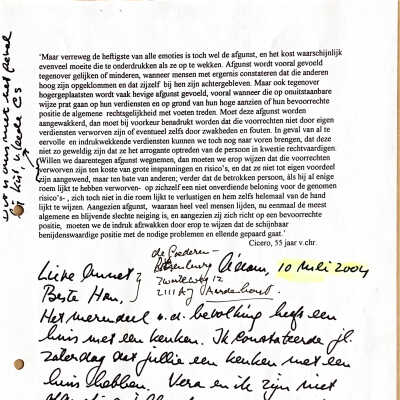 'Maar verreweg de heftigste van alle emoties is toch wel de afgunst, en het kost waarschijnlijk
evenveel moeite die te onderdrukken als ze op te wekken. Afgunst wordt vooral gevoeld
tegenover gelijken of minderen, wanneer mensen met ergernis constateren dat die anderen
hoog zijn opgeklommen en dat zijzelf bij hen zijn achtergebleven. Maar ook tegenover
hogergeplaatsten wordt vaak hevige afgunst gevoeld, vooral wanneer die op onuitstaanbare
wijze prat gaan op hun verdiensten en op grond van hun hoge aanzien of hun bevoorrechte
positie de algemene rechtsgelijkheid met voeten treden. Moet deze afgunst worden
aangewakkerd, dan moet bij voorkeur benadrukt worden dat die voorrechten niet door eigen
verdiensten verworven zijn of eventueel zelfs door zwakheden en fouten. In geval van al te
eervolle en indrukwekkende verdiensten kunnen we toch nog naar voren brengen, dat deze
niet zo geweldig zijn dat ze het arrogante optreden van de persoon in kwestie rechtvaardigen.
Willen we daarentegen afgunst wegnemen, dan moeten we erop wijzen dat die voorrechten
verworven zijn ten koste van grote inspanningen en risico's, en dat ze niet tot eigen voordeel
zijn aangewend, maar ten bate van anderen; verder dat de betrokken persoon, als hij al enige
roem lijkt te hebben verworven- op zichzelf een niet onverdiende beloning voor de genomen
risico's- , zich toch niet in die roem lijkt te verlustigen en hem zelfs helemaal van de hand
lijkt te wijzen. Aangezien afgunst, waaraan heel veel mensen lijden, nu eenmaal de meest
algemene en blijvende slechte neiging is, en aangezien zij zich richt op een bevoorrechte
positie, moeten we de indruk afzwakken door erop te wijzen dat de schijnbaar
benijdenswaardige positie met de nodige problemen en ellende gepaard gaat.'
Cicero, 55 jaar v.chr.
10 juli 2004
Lieve
Beste Han,
Zwarteweg 12
2111 AJ Aerdenhout
Het merendeel v.d. bevolking heeft een
huis met een keuken. Ik constateerde jl.
zaterdag dat jullie een keuken met een
huis hebben. Vera en ik zijn niet